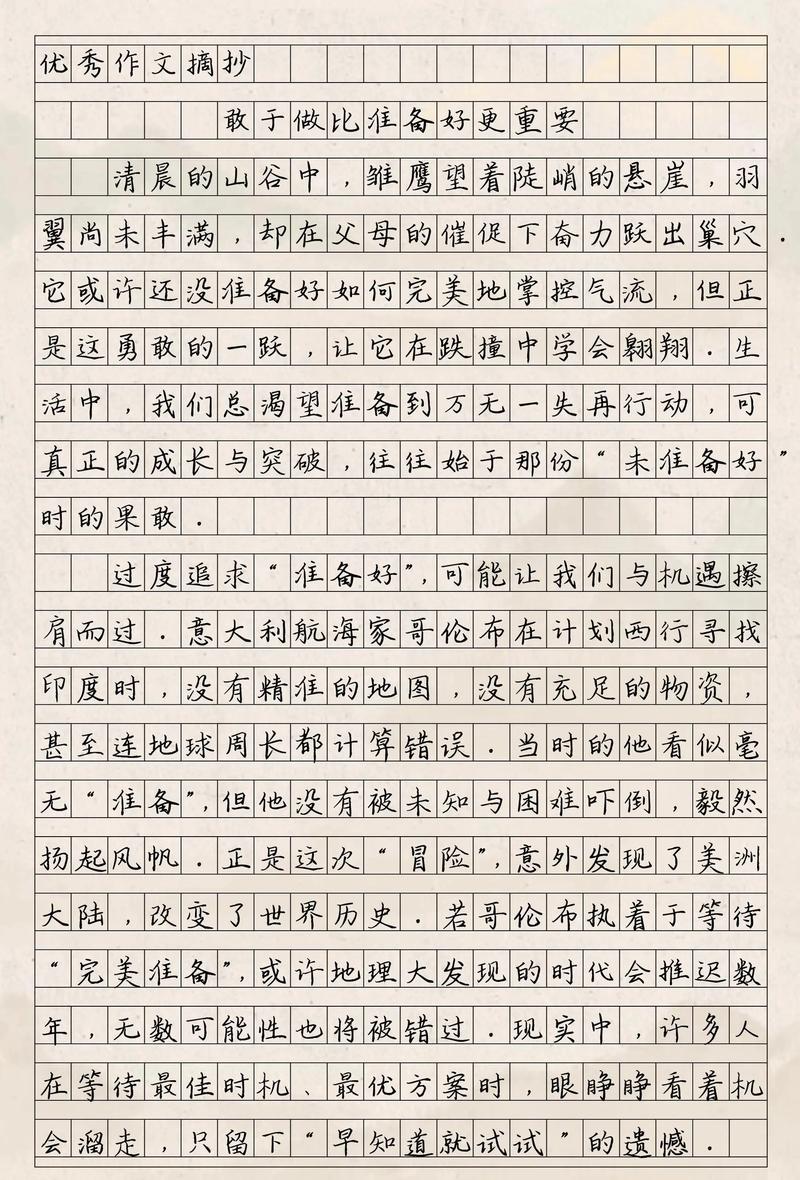 优秀作文摘抄
敢于做比准备好更重要
清晨的山谷中，雏鹰望着陡峭的悬崖，羽
翼尚未丰满，却在父母的催促下奋力跃出巢穴．
它或许还没准备好如何完美地掌控气流，但正
是这勇敢的一跃，让它在跌撞中学会翱翔．生
活中，我们总渴望准备到万无一失再行动，可
真正的成长与突破，往往始于那份“未准备好”
时的果敢．
过度追求“准备好”，可能让我们与机遇擦
肩而过．意大利航海家哥伦布在计划西行寻找
印度时，没有精准的地图，没有充足的物资，
甚至连地球周长都计算错误．当时的他看似毫
无“准备”，但他没有被未知与困难吓倒，毅然
扬起风帆．正是这次“冒险”，意外发现了美洲
大陆，改变了世界历史．若哥伦布执着于等待
“完美准备”，或许地理大发现的时代会推迟数
年，无数可能性也将被错过．现实中，许多人
在等待最佳时机、最优方案时，眼睁睁看着机
会溜走，只留下“早知道就试试”的遗憾．